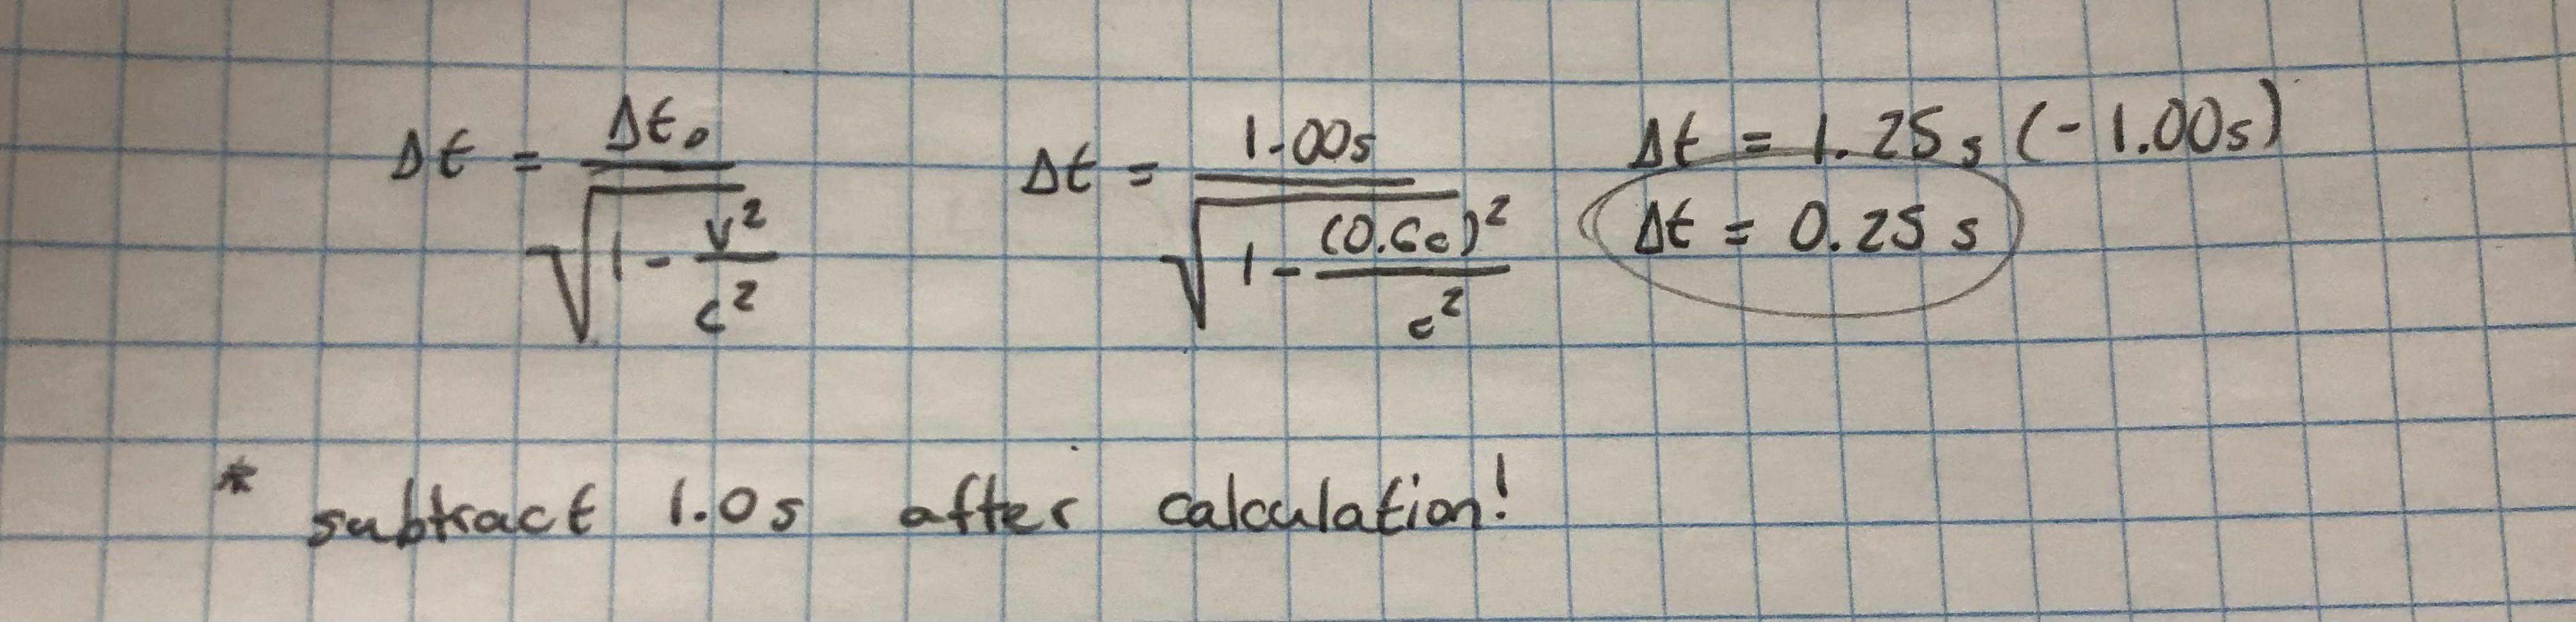 Δt = Δt₀ / √(1 - v²/c²)
Δt = 1.00s / √(1 - (0.6c)²/c²)
Δt = 1.25s (-1.00s)
Δt = 0.25 s
* subtract 1.0s after calculation!